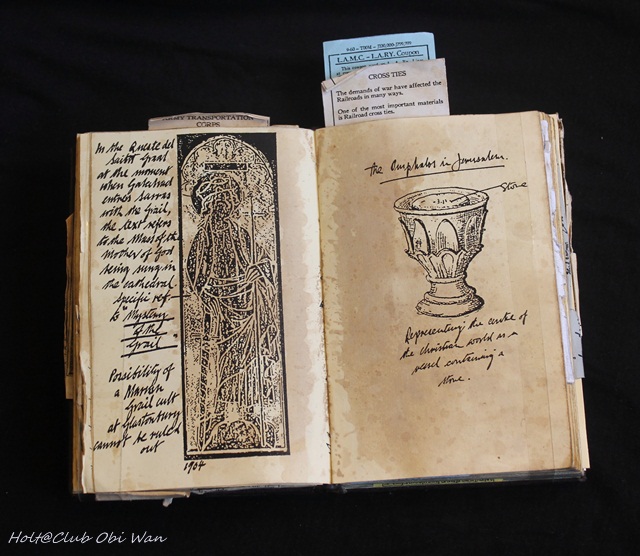 9-60 - TMM -
L.A.M.C. – L.A.RY. Coupon
CROSS TIES
The demands of war have affected the
Railroads in many ways.
One of the most important materials
is Railroad cross ties.
ARMY TRANSPORTATION
CORPS.
In the Queste del
Saint Graal
at the moment
when Galahad
enters Sarras
with the Grail,
the text refers
to the Mass of the
Mother of God
being sung in
the cathedral
specific ref-
to Mystery
of the
Grail
Possibility of
a Marian
Grail cult
at Glastonbury
cannot be ruled
out
1904
the Omphalos in Jerusalem.
Stone
Representing the centre of
the Christian world is a
vessel containing a
stone.
Holt@Club Obi Wan